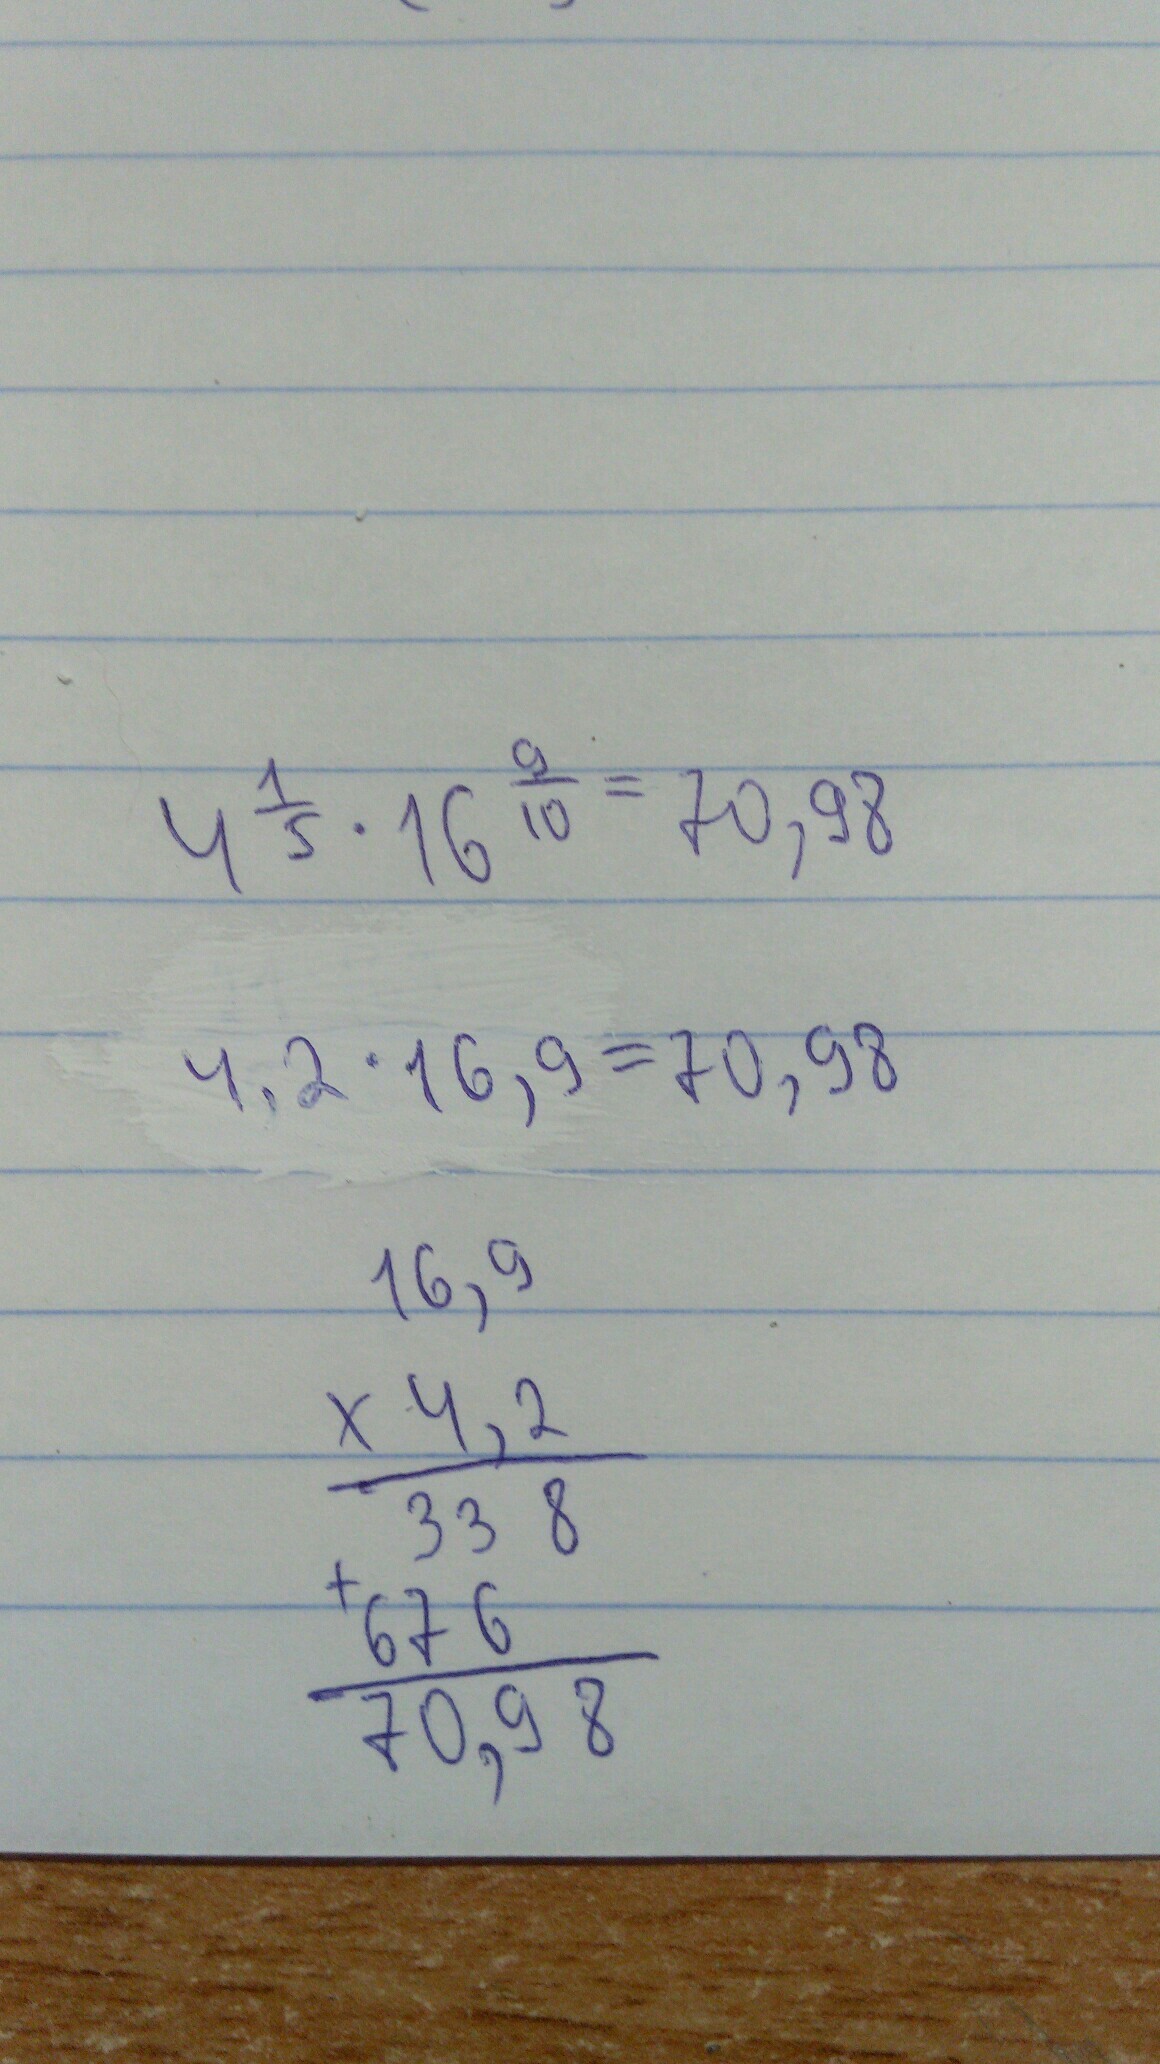 4 1/5 · 16 9/10 = 70,98
4,2 · 16,9 = 70,98
16,9
x 4,2
338
+ 676
70,98